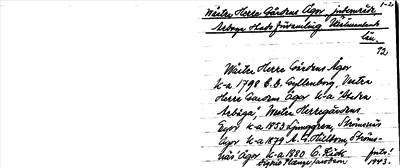 1-2
Wäster Herre Gårdens Ägor
Arboga Stads Församling Västmanlands
län.
12
Wäster Herre Gårdens Ägor
k-a 1798 C.D. Gyllenborg, Vestra
Herre Gardens Ägor k-a "Östra
Arboga", Wester Herregårdens
Egor k-a 1853 Ljunggren, Strömsnäs
Egor k-a 1879 A.G. Hellbom, Ströms-
näs Ägor k-a 1880 C. Rück
1943.